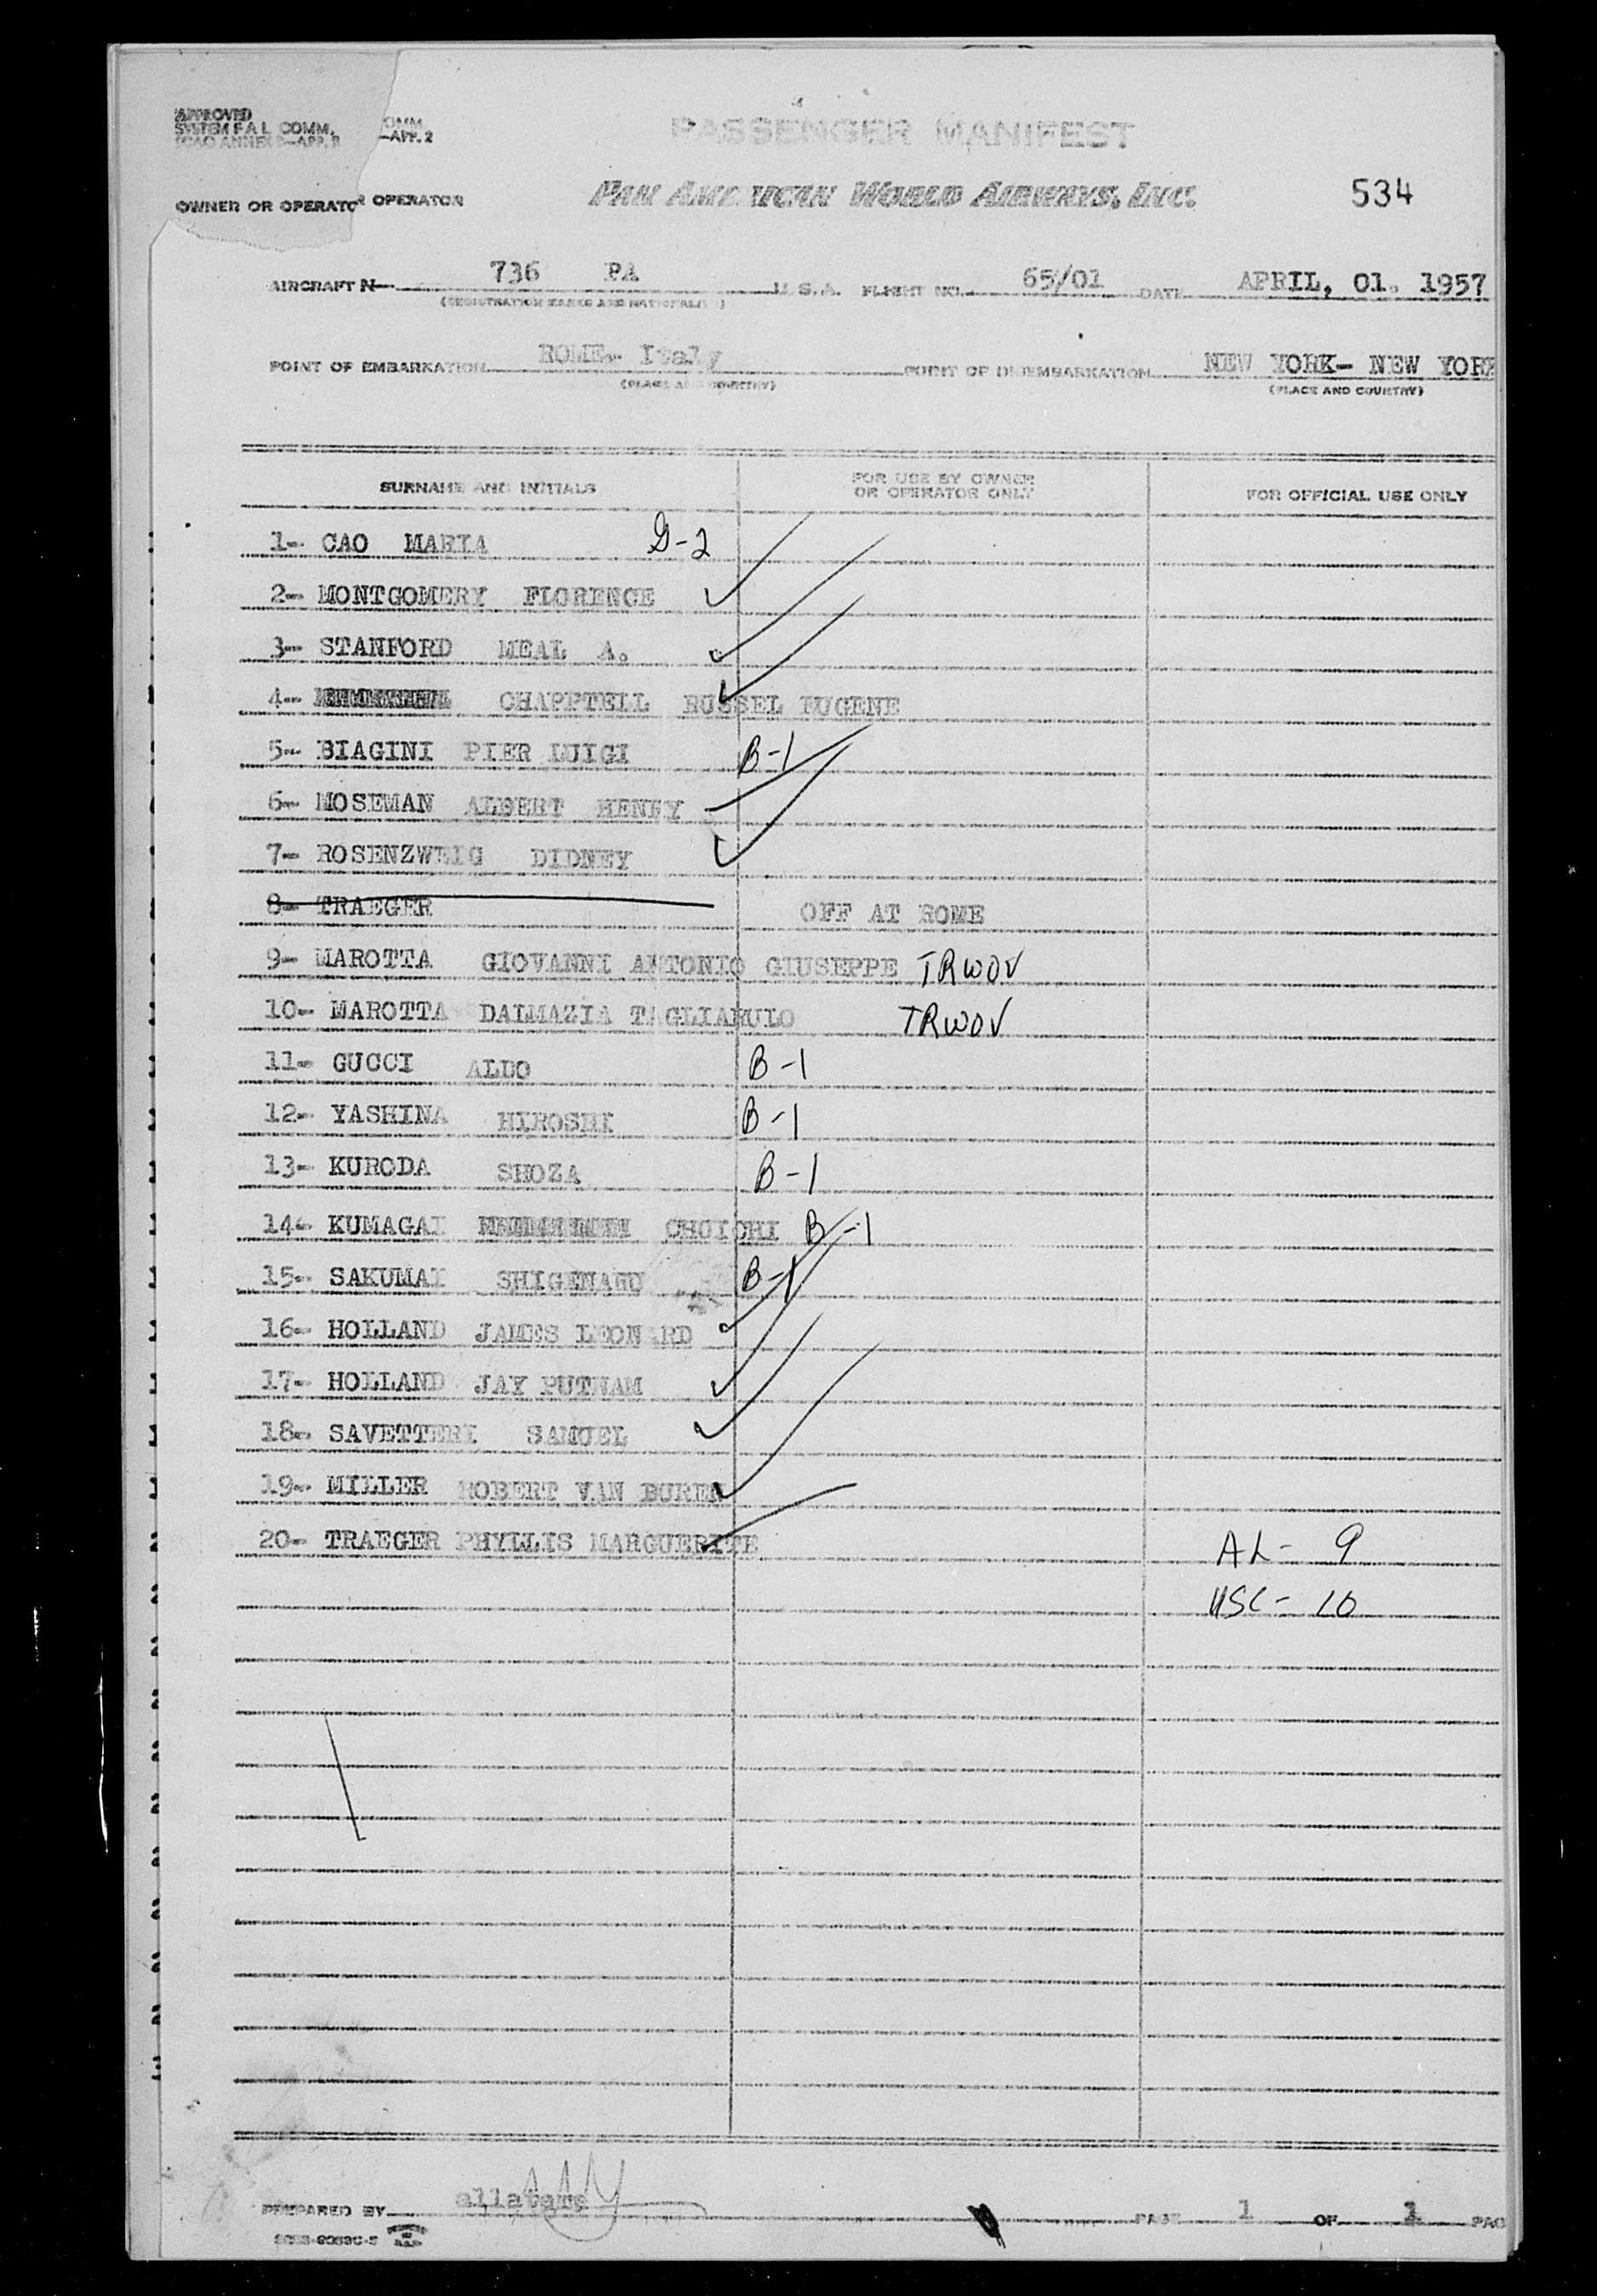 APPROVED
SYSTEM F A L COMM. OMM.
ICAO ANNEX 9—APP. 2 —APP. 2
PASSENGER MANIFEST
OWNER OR OPERATO R OPERATOR PAN AMERICAN WORLD AIRWAYS, INC. 534
AIRCRAFT N 736 PA U.S.A. FLIGHT NO. 65/01 DATE APRIL, 01. 1957
(REGISTRATION MARKS AND NATIONALITY)
POINT OF EMBARKATION ROME- Italy POINT OF DISEMBARKATION NEW YORK- NEW YORK
(PLACE AND COUNTRY) (PLACE AND COUNTRY)
SURNAME AND INITIALS FOR USE BY OWNER OR OPERATOR ONLY FOR OFFICIAL USE ONLY
1- CAO MARIA G-2
2- MONTGOMERY FLORENCE
3- STANFORD MEAL A.
4- CHAPPTELL RUSSEL EUGENE
5- BIAGINI PIER LUIGI B-1
6- MOSEMAN ALBERT HENRY
7- ROSENZWEIG DIDNEY
8- TRAEGER OFF AT ROME
9- MAROTTA GIOVANNI ANTONIO GIUSEPPE TRWOV
10- MAROTTA DALMAZIA TAGLIARULO TRWOV
11- GUCCI ALDO B-1
12- YASHINA HIROSHI B-1
13- KURODA SHOZA B-1
14- KUMAGAI CHUICHI B-1
15- SAKUMAI SHIGENAGU B-1
16- HOLLAND JAMES LEONARD
17- HOLLAND JAY PUTNAM
18- SAVETTERI SAMUEL
19- MILLER ROBERT VAN BUREN
20- TRAEGER PHYLLIS MARGUERITE
AL- 9
USC- 10
PREPARED BY PAGE 1 OF 1 PAG